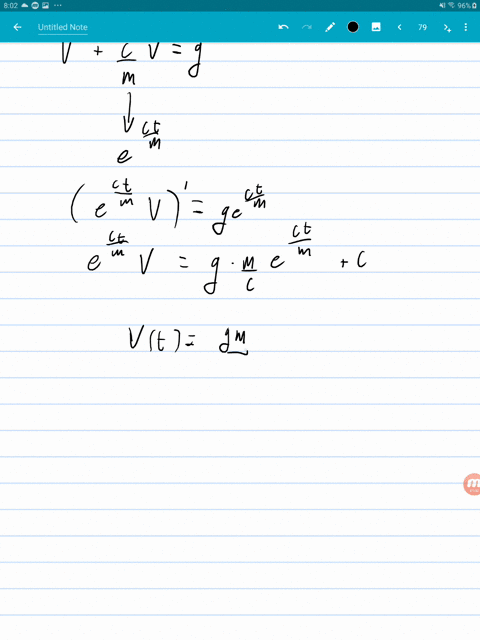 8:02 96%
Untitled Note 79
V + c/m V = g
e^(ct/m)
(e^(ct/m) V)' = ge^(ct/m)
e^(ct/m) V = g · m/c e^(ct/m) + C
V(t) = gm